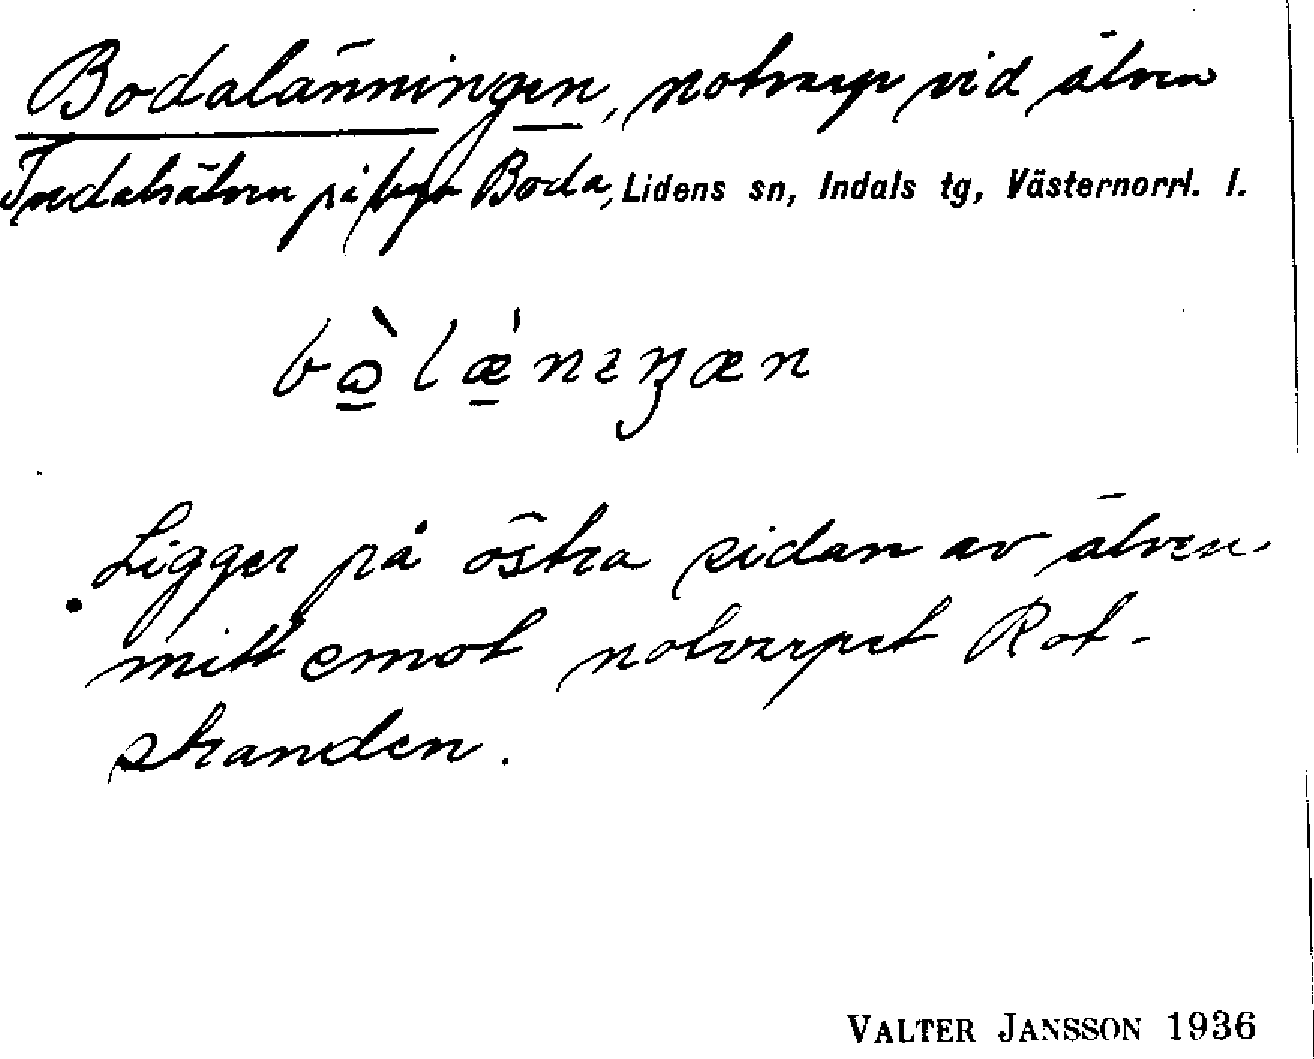 Bodalänningen, notvarp vid älven
Indalsälven på byn Boda, Lidens sn, Indals tg, Västernorrl. l.
Ligger på östra sidan av älven
mitt emot notvarpet Rot-
stranden.
VALTER JANSSON 1936